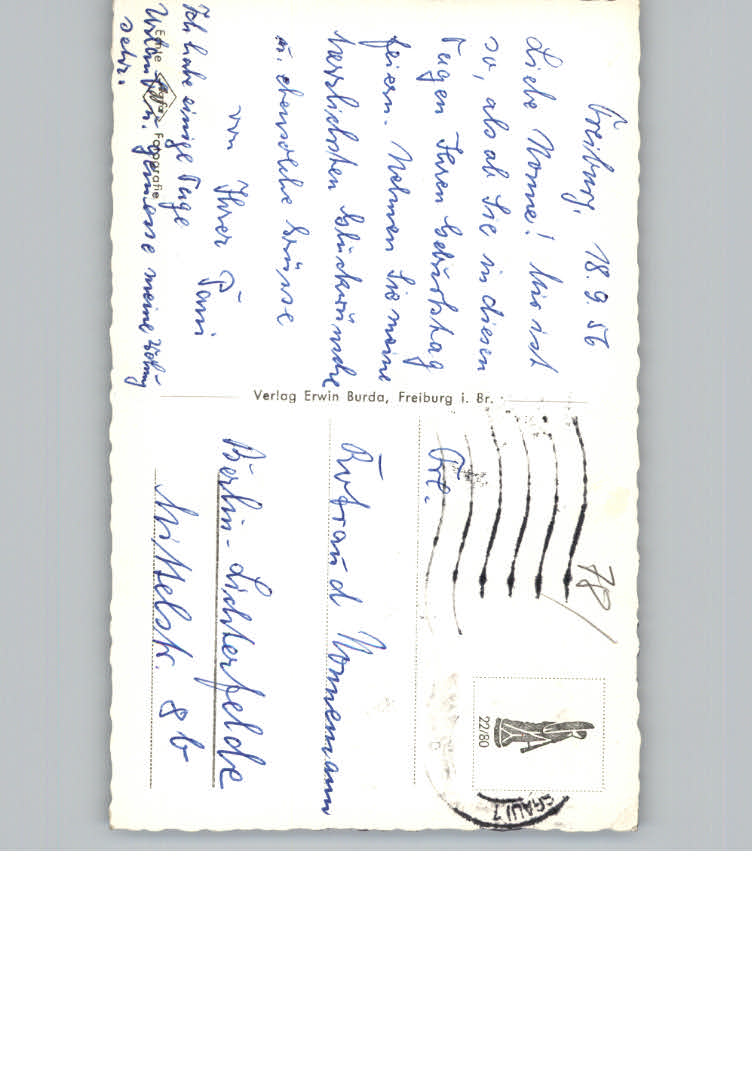 Freiburg, 18.9.56
Liebe Nonne! Mir ist
so, als ob Sie in diesen
Tagen Ihren Geburtstag
feiern. Nehmen Sie meine
herzlichsten Glückwünsche
u. ebensolche Grüsse
von Ihrer Tomi
Ich habe einige Tage
Urlaub, geniesse meine Wohnung
sehr.
Echte Agfa Fotografie
Verlag Erwin Burda, Freiburg i. Br.
Frl.
Rotraud Nonnemann
Berlin-Lichterfelde
Mittelstr. 8b
78
22/80